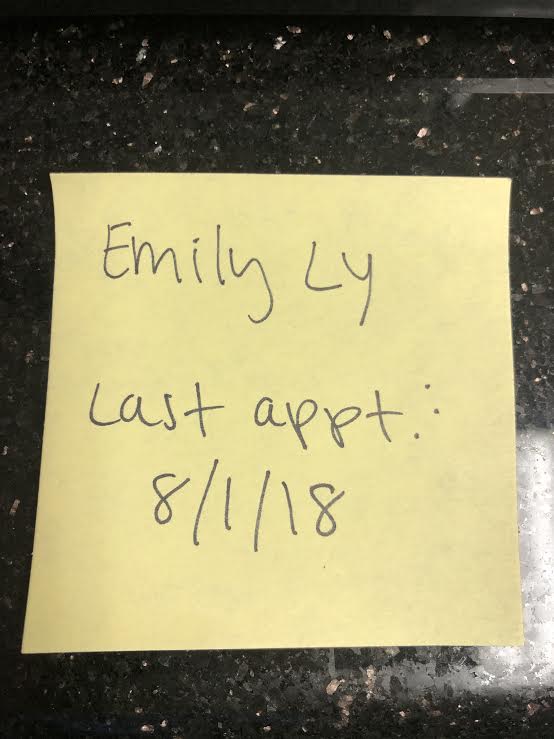 Emily Ly
Last appt.:
8/1/18